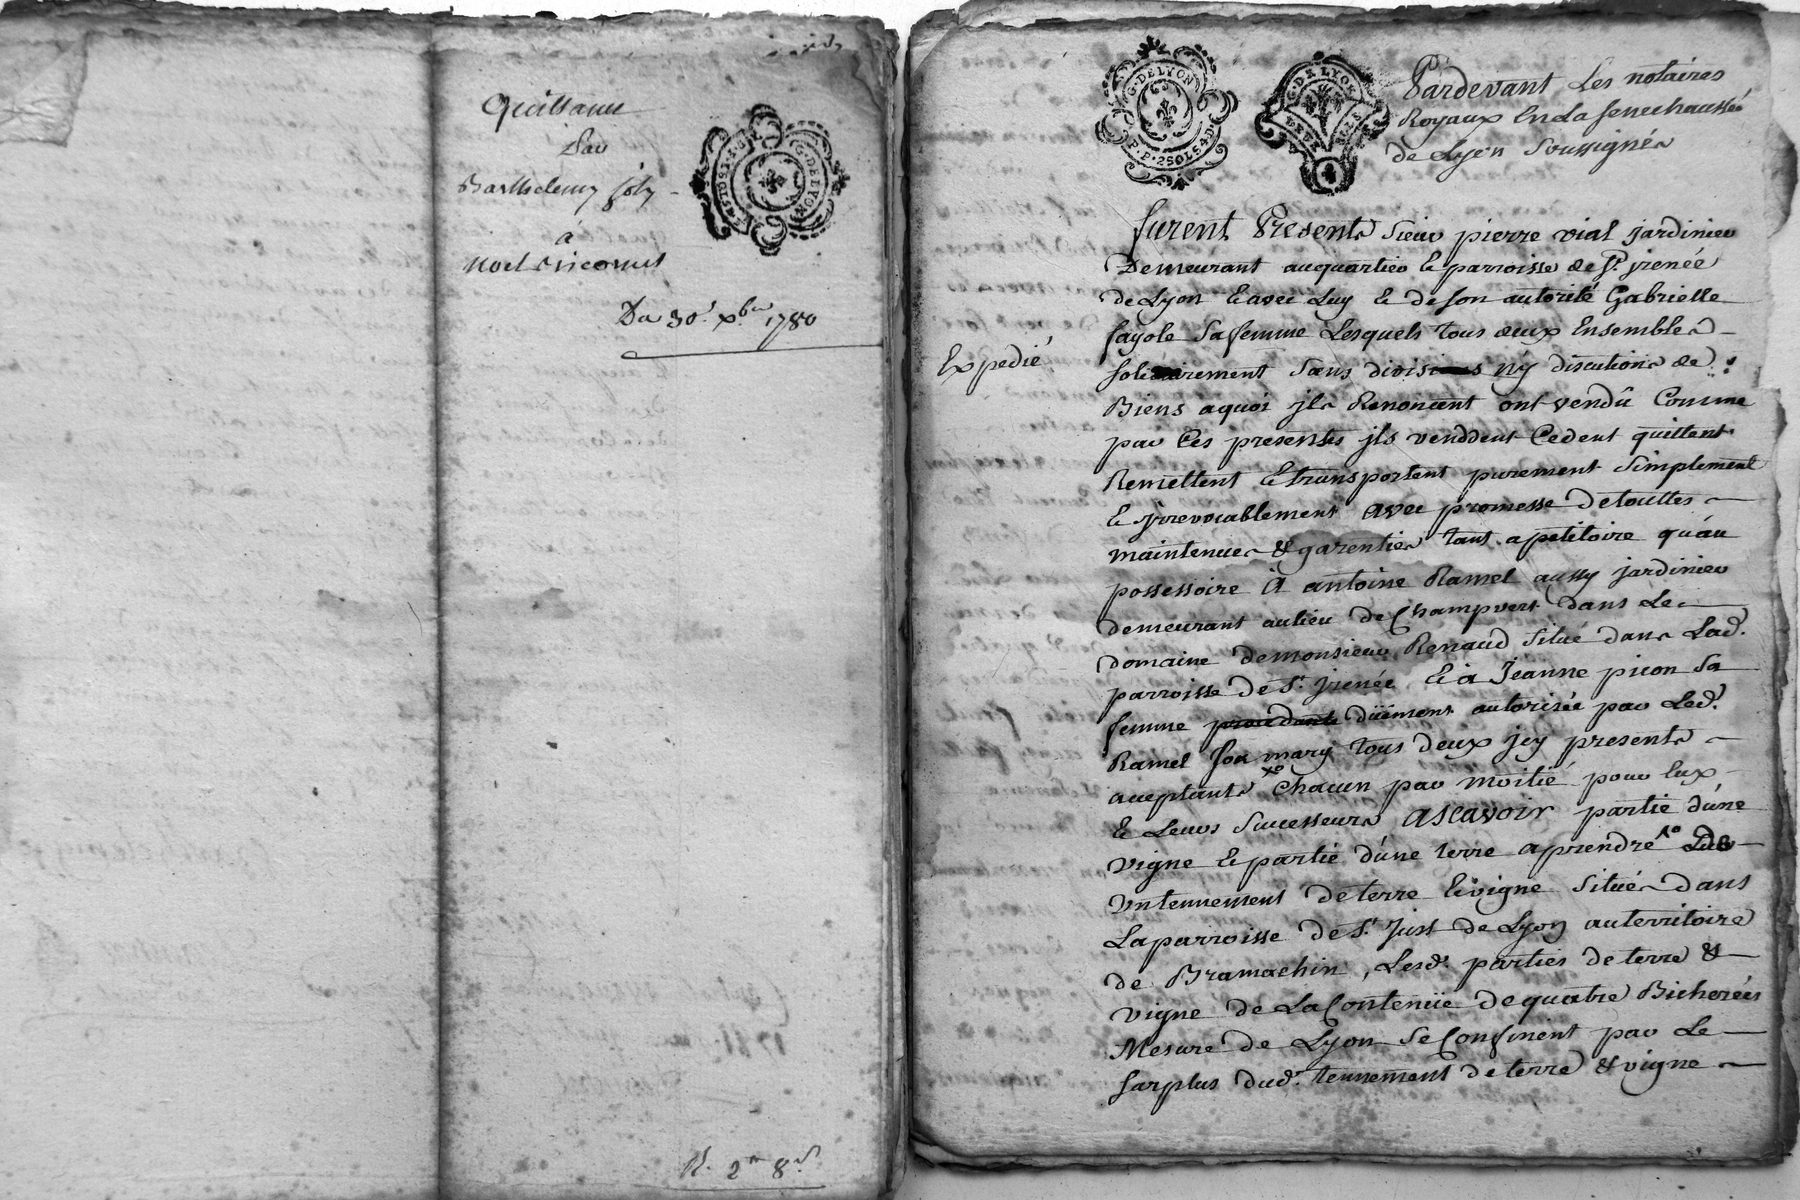 Quittance
Sar
Barthelemy joly
a
Noel
Du 30e. xbre 1780
R. 2 8
G. DE LYON
G. DE LYON
P. P. 2 SOLS 4 D.
G. DE LYON
4
Expedié
Pardevant Les notaires
Royaux En La Senechaussée
de Lyon Soussignés
furent Presents Sieur pierre vial jardinier
Demeurant auquartier & parroisse de St. jrenée
de Lyon & avec Luy & de son autorité Gabrielle
fayole Sa femme Lesquels tous deux Ensembles
solidairement sans divisions ny discutions de
Biens aquoi jls Renoncent ont vendû Comme
par Ces presentes jls venddent Cedent quittent
Remettent & transportent purement simplement
& jrrevocablement avec promesse de touttes
maintenues & garenties tant apetitoire qu'au
possessoire A antoine Ramel aussy jardinier
demeurant aulieu de Champvert dans Le
domaine de monsieur Renaud situé dans Lad.
parroisse de St. jrenée & à Jeanne picon sa
femme procedante düement autorisée par Led.
Ramel son mary tous deux jcy presents
acceptants Chacun par moitié pour Eux
& Leurs Successeurs ASCAVOIR partie d'une
vigne & partie d'une terre aprendre
Untennement de terre & vigne situés dans
La parroisse de St. Just de Lyon auterritoire
de Bramachin, Lesd. parties de terre &
vigne de La Contenüe de quatre Bicherées
Mesure de Lyon se Confinent par Le
surplus dud. tennement de terre & vigne